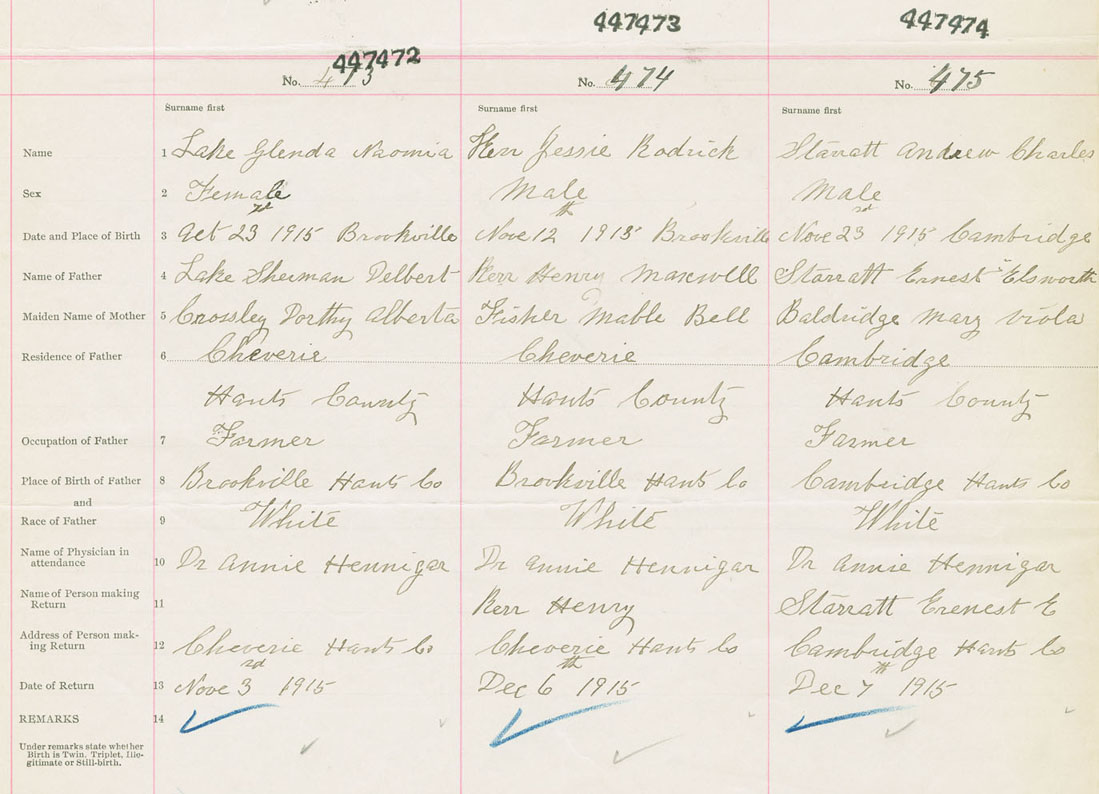 447472 447473 447474
No. 473 No. 474 No. 475
Surname first Surname first Surname first
Name 1 Lake Glenda Naomia Kerr Jessie Rodrick Starratt Andrew Charles
Sex 2 Female Male Male
Date and Place of Birth 3 Oct 23rd 1915 Brookville Nove 12th 1915 Brookville Nove 23rd 1915 Cambridge
Name of Father 4 Lake Sherman Delbert Kerr Henry Maxwell Starratt Ernest Elsworth
Maiden Name of Mother 5 Crossley Dorthy Alberta Fisher Mable Bell Baldridge Mary Viola
Residence of Father 6 Cheverie Cheverie Cambridge
Hants County Hants County Hants County
Occupation of Father 7 Farmer Farmer Farmer
Place of Birth of Father 8 Brookville Hants Co Brookville Hants Co Cambridge Hants Co
and
Race of Father 9 White White White
Name of Physician in attendance 10 Dr Annie Hennigar Dr Annie Hennigar Dr Annie Hennigar
Name of Person making Return 11 Kerr Henry Starratt Erenest E
Address of Person mak-ing Return 12 Cheverie Hants Co Cheverie Hants Co Cambridge Hants Co
Date of Return 13 Nove 3rd 1915 Dec 6th 1915 Dec 7th 1915
REMARKS 14
Under remarks state whether
Birth is Twin, Triplet, Ille-
gitimate or Still-birth.